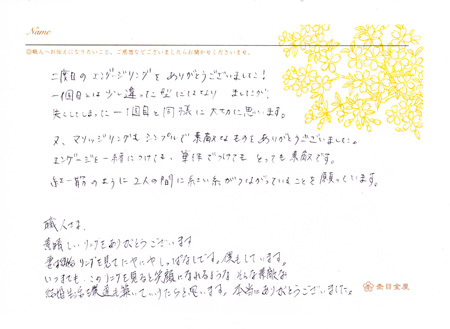 Name
◎職人へお伝えになりたいこと、ご感想などございましたらお聞かせくださいませ。
二度目のエンゲージリングをありがとうございました!
一個目とは少し違った型にはなりましたが、
失くしてしまった一個目と同様に大切に思います。
又、マリッジリングもシンプルで素敵なものをありがとうございました。
エンゲージと一緒につけても、単体でつけてもとっても素敵です。
紅一筋のように2人の間に紅い糸がつながっていることを願っています。
職人さま
素晴しいリングをありがとうございます
リングを見てにやにやしっぱなしです。僕もしています。
いつまでも、このリングを見ると笑顔になれるような そんな素敵な
結婚生活を築いていけたらと思います。本当にありがとうございました。
杢目金屋